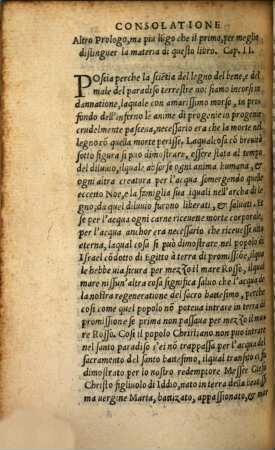 CONSOLATIONE
Altro Prologo, ma piu lũgo che il primo, per meglio
distinguer la materia di questo libro. Cap. II.
POscia perche la sciẽtia del legno del bene, e del
male del paradiso terrestre noi siamo incorsi in
dannatione, laquale con amarissimo morso, in pro-
fondo dell'inferno le anime di progenie in progenie
crudelmente pasceua, necessario era che la morte nel
legno cõ quella morte perisse. Laqual cosa cõ breuità
sotto figura si può dimostrare, essere stata al tempo
del diluuio, ilquale absorse ogni anima humana, &
ogni altra creatura per l'acqua somergendo quelle
eccetto Noe, e la famiglia sua iquali nell'archa di le-
gno, da quel diluuio furono liberati, & saluati. Et
se per l'acqua ogni carne riceuette morte corporale,
per l'acqua anchor era necessario che riceuesse uita
eterna, laqual cosa si può dimostrare nel popolo di
Israel cõdotto di Egitto à terra di promissiõe, ilqua
le hebbe uia sicura per mezzo il mare Rosso, ilqual
mare nissun'altra cosa significa saluo che l'acqua del
la nostra regeneratione del sacro battesimo, perche
cosi come quel popolo nõ poteua intrare in terra di
promissione se prima non passaua per mezzo il ma-
re Rosso. Cosi il popolo Christiano non può intrare
nel santo paradiso s'ei nõ trappassa per l'acqua del
sacramento del santo battesimo, ilqual transito fu
dimostrato per lo nostro redemptore Messer Giesu
Christo figliuolo di Iddio, nato in terra della beatis
sima uergine Maria, batizato, appassionato, & mor